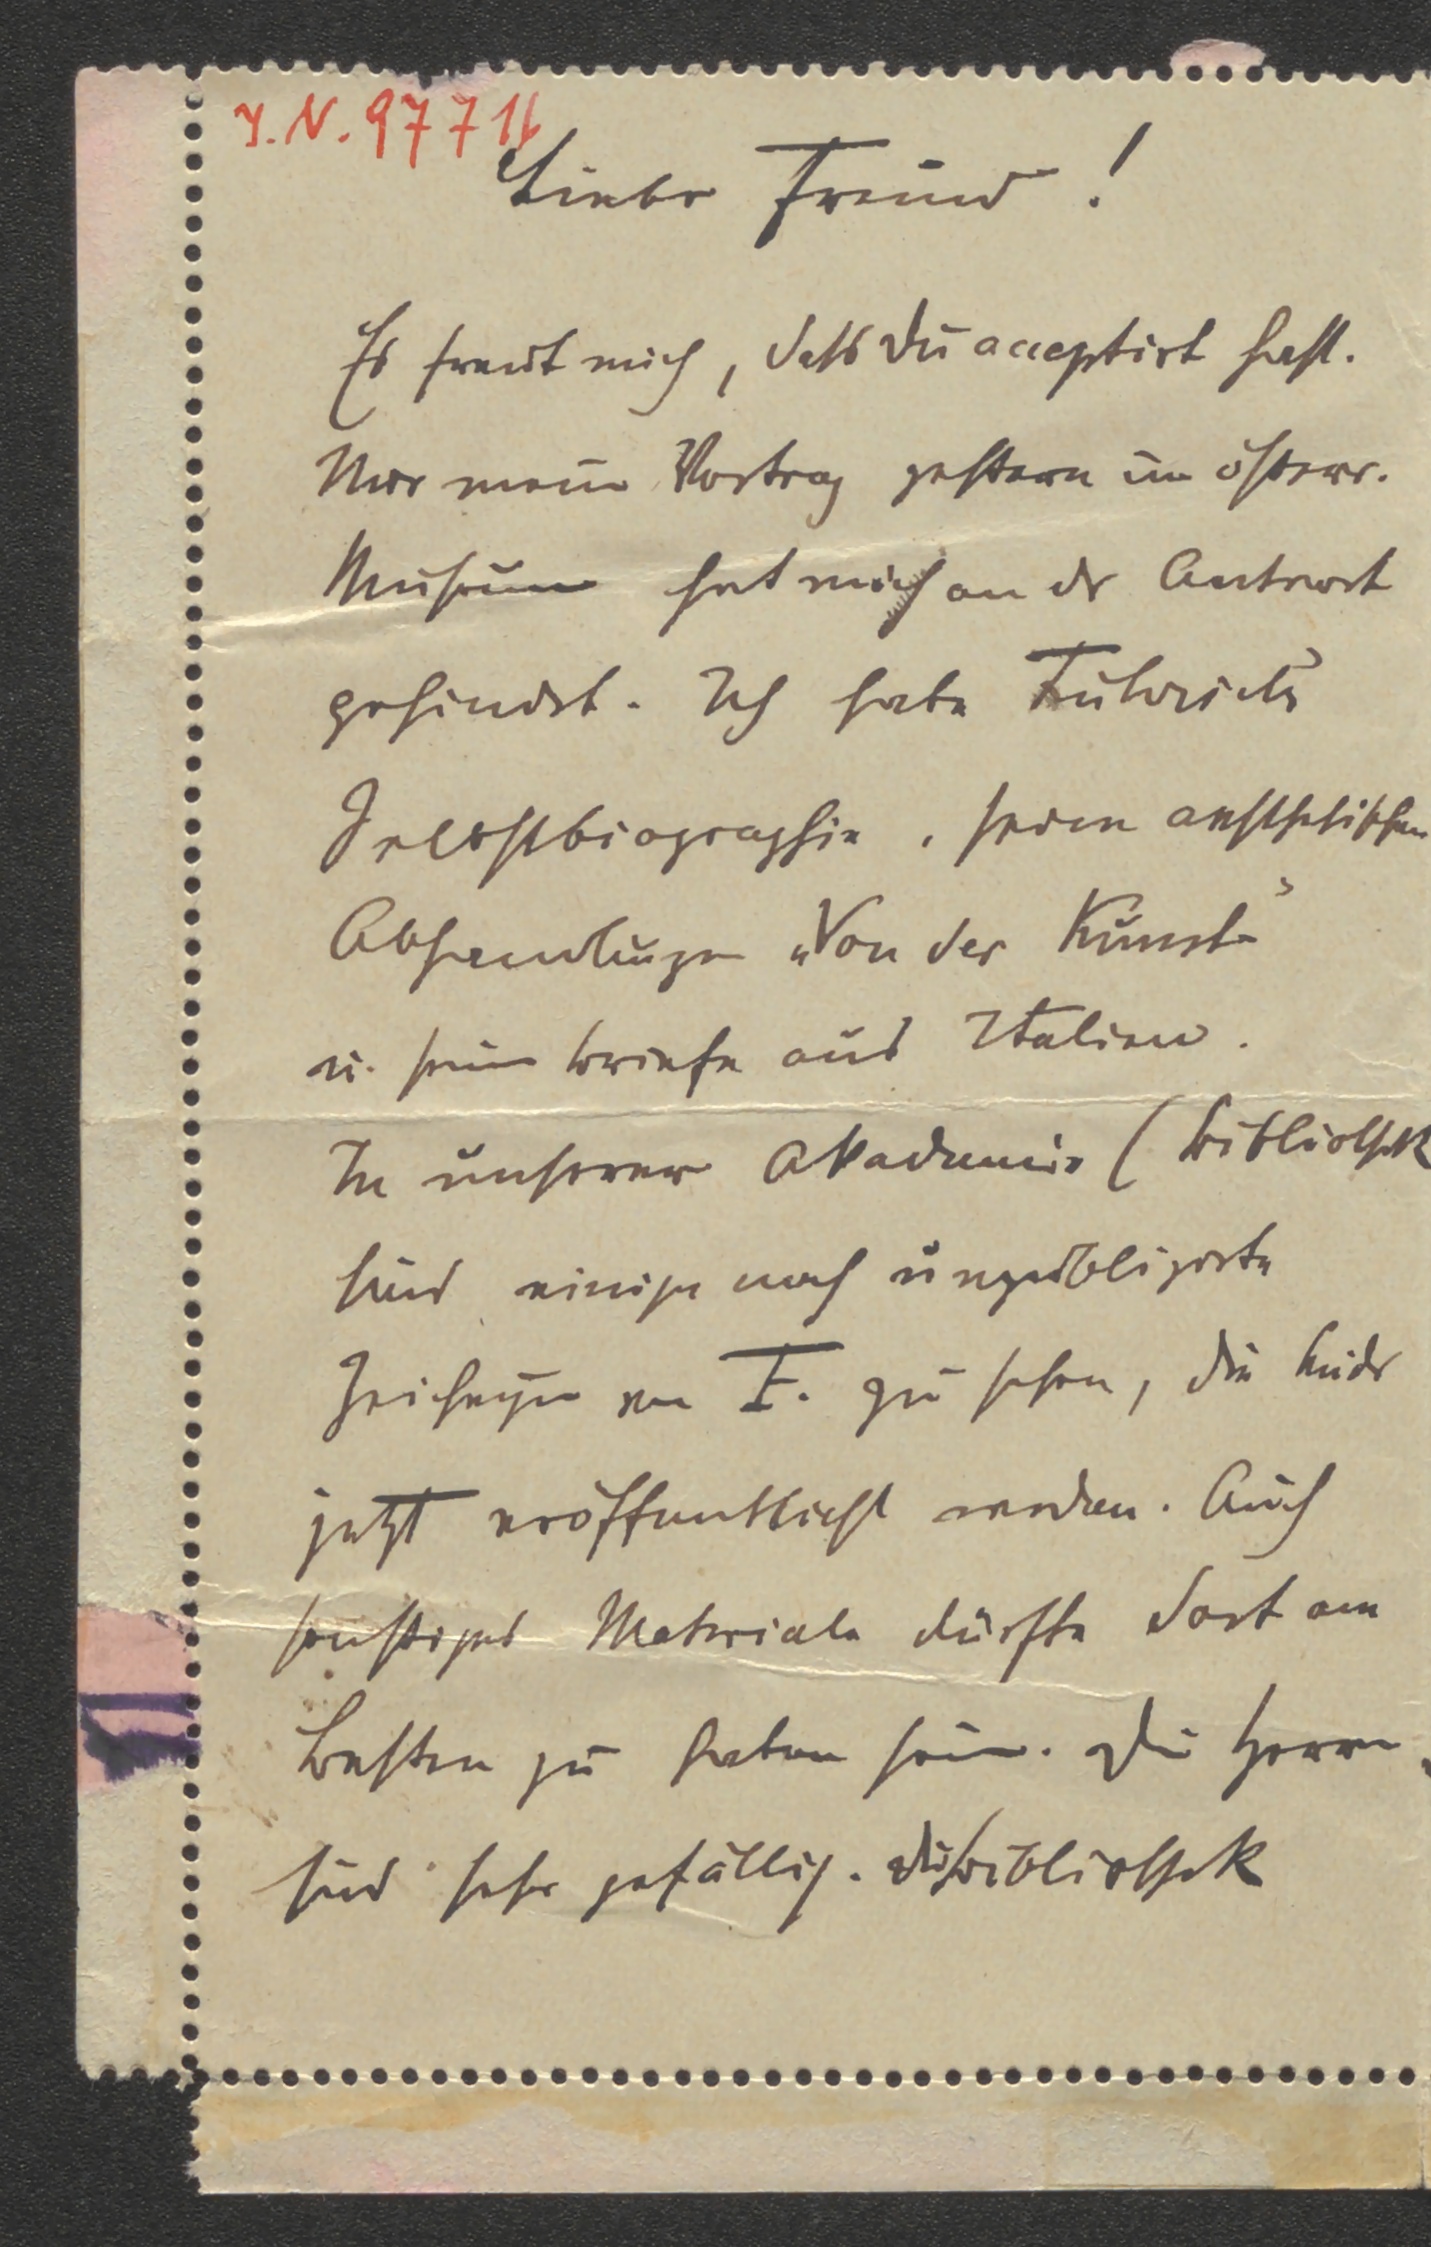 I. N. 97711
Lieber Freund!
Es freut mich, dass Du acceptirt hast.
Nur mein Vortrag gestern im österr.
Museum hat mich an der Antwort
gehindert. Ich habe Führich's
Selbstbiographie, seine aesthetischen
Abhandlungen „Von der Kunst"
u. seine Briefe aus Italien.
In unserer Akademie (Bibliothek
sind einige noch unpublizirte
Zeichngen von F. zu sehen, die leider
jetzt veröffentlicht werden. Auch
sonstiges Materiale dürfte dort am
Besten zu haben sein. Die Herren
sind sehr gefällig. Die Bibliothek